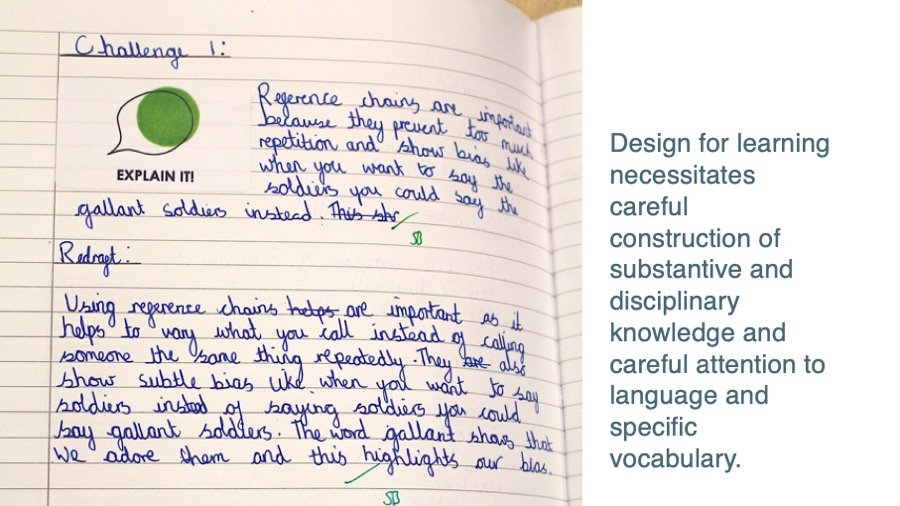 Challenge 1:
EXPLAIN IT!
Reference chains are important
because they prevent too much
repetition and show bias like
when you want to say the
soldiers you could say the
gallant soldiers instead. This sho
SB
Redraft:
Using reference chains helps are important as it
helps to vary what you call instead of calling
someone the same thing repeatedly. They are also
show subtle bias like when you want to say
soldiers insted of saying soldiers you could
say gallant soldiers. The word gallant shows that
we adore them and this highlights our bias.
SB
Design for learning
necessitates
careful
construction of
substantive and
disciplinary
knowledge and
careful attention to
language and
specific
vocabulary.